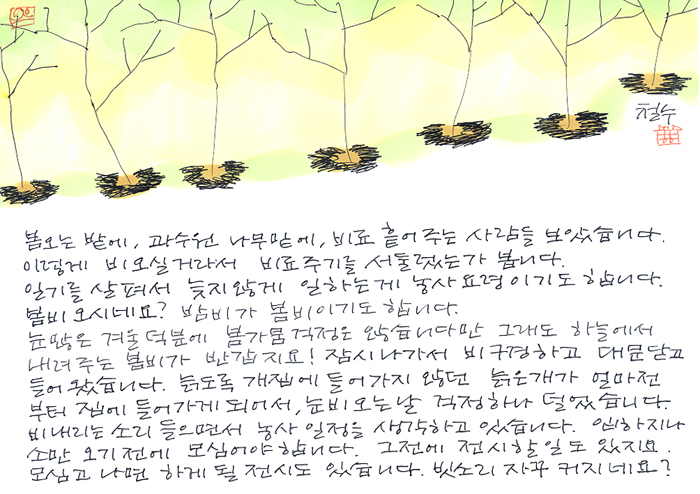 철수
봄오는 밭에, 과수원 나무밑에, 비료 흩어주는 사람들 보았습니다.
이렇게 비오실거라서 비료주기를 서둘렀는가 봅니다.
일기를 살펴서 늦지않게 일하는게 농사요령이기도 합니다.
봄비 오시네요? 밤비가 봄비이기도합니다.
눈많은 겨울덕분에 봄가뭄걱정은 않습니다만 그래도 하늘에서
내려주는 봄비가 반갑지요! 잠시나가서 비구경하고 대문닫고
들어왔습니다. 늙도록 개집에 들어가지 않던 늙은개가 얼마전
부터 집에 들어가게 되어서, 눈비오는날 걱정하나 덜었습니다.
비내리는 소리 들으면서 농사 일정을 생각하고 있습니다. 입하지나
소만 오기전에 모심어야합니다. 그전에 전시할일도 있지요.
모심고 나면 하게될 전시도 있습니다. 빗소리 자꾸 커지네요?